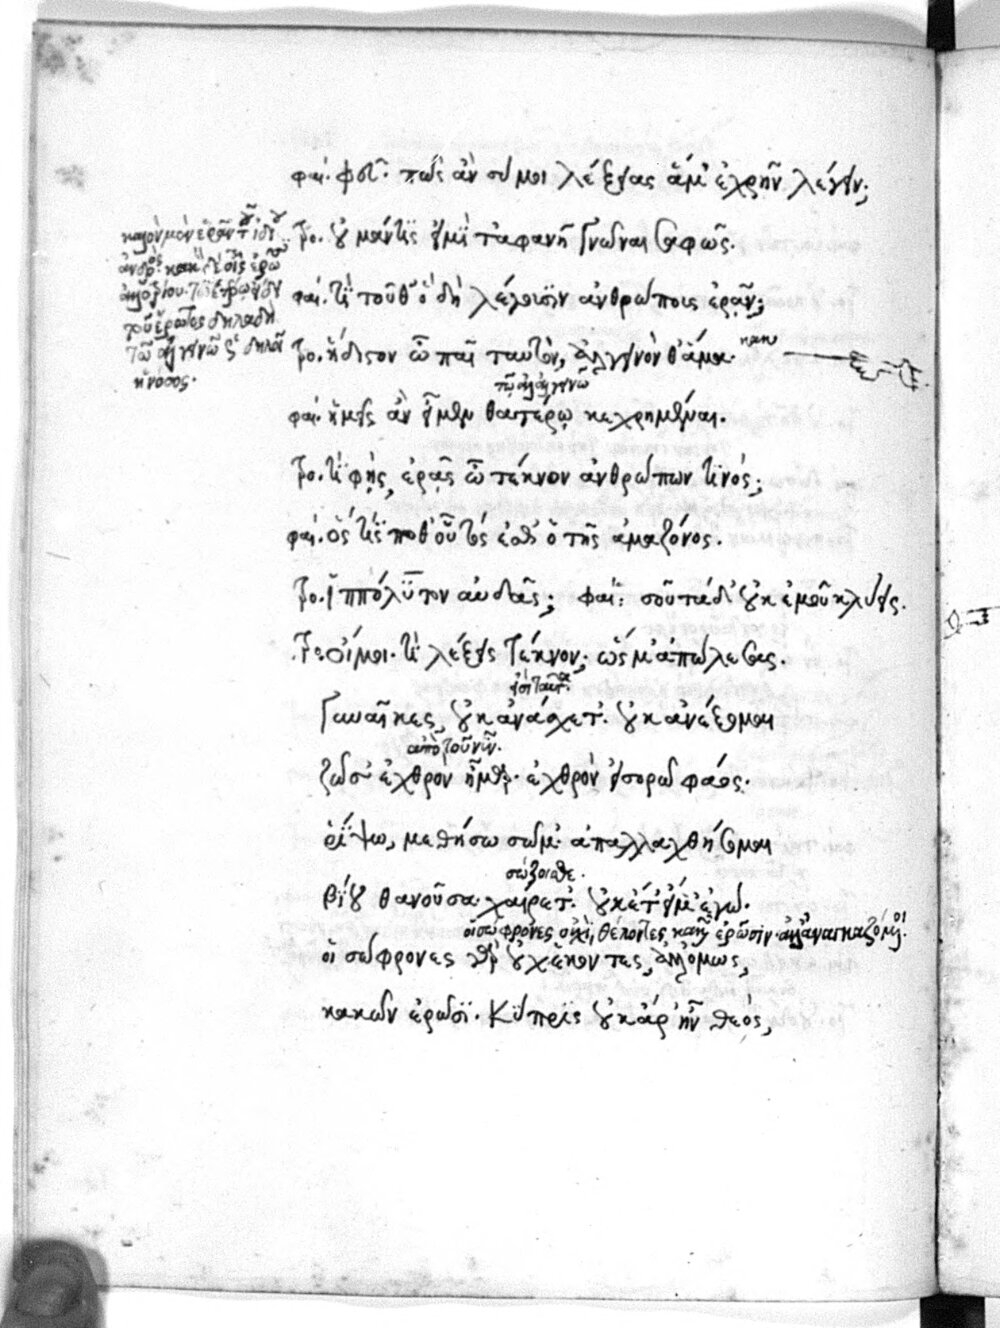 φαι. φεῦ. πῶς ἂν σύ μοι λέξειας ἅμ' ἐχρῆν λέγειν;
τρο. οὐ μάντις εἰμὶ τἀφανῆ γνῶναι σαφῶς.
φαι. τί τοῦθ' ὃ δὴ λέγουσιν ἀνθρώποις ἐρᾶν;
τρο. ἥδιστον ὦ παῖ ταυτὸν, ἀλγεινὸν θ' ἅμα.
τῷ ἀλγεινῷ
φαι. ἡμεῖς ἂν εἶμεν θατέρῳ κεχρημέναι.
τρο. τί φής, ἐρᾷς ὦ τέκνον ἀνθρώπων τινός;
φαι. ὅς τίς ποθ' οὗτός ἐσθ' ὁ τῆς ἀμαζόνος.
τρο. ἱππόλυτον αὐδᾷς; φαι: σοῦ τάδ' οὐκ ἐμοῦ κλύεις.
τρο οἴμοι. τί λέξεις τέκνον; ὥς μ' ἀπώλεσας.
γυναῖκες, οὐκ ἀνάσχετ'. οὐκ ἀνέξομαι
ἀπὸ τοῦ νῦν.
ζῶσ' ἐχθρὸν ἦμαρ. ἐχθρὸν εἰσορῶ φάος.
ῥίψω, μεθήσω σῶμ' ἀπαλλαχθήσομαι
σώζοισθε.
βίου θανοῦσα χαίρετ'. οὐκέτ' εἴμ' ἐγώ.
οἱ σώφρονες οὐχὶ θέλοντες κακῶν ἐρῶσιν. ἀλλ' ἀναγκαζόμενοι.
οἱ σώφρονες γὰρ οὐχ ἑκόντες, ἀλλ' ὅμως,
κακῶν ἐρῶσι. Κύπρις οὐκ ἄρ' ἦν θεός,